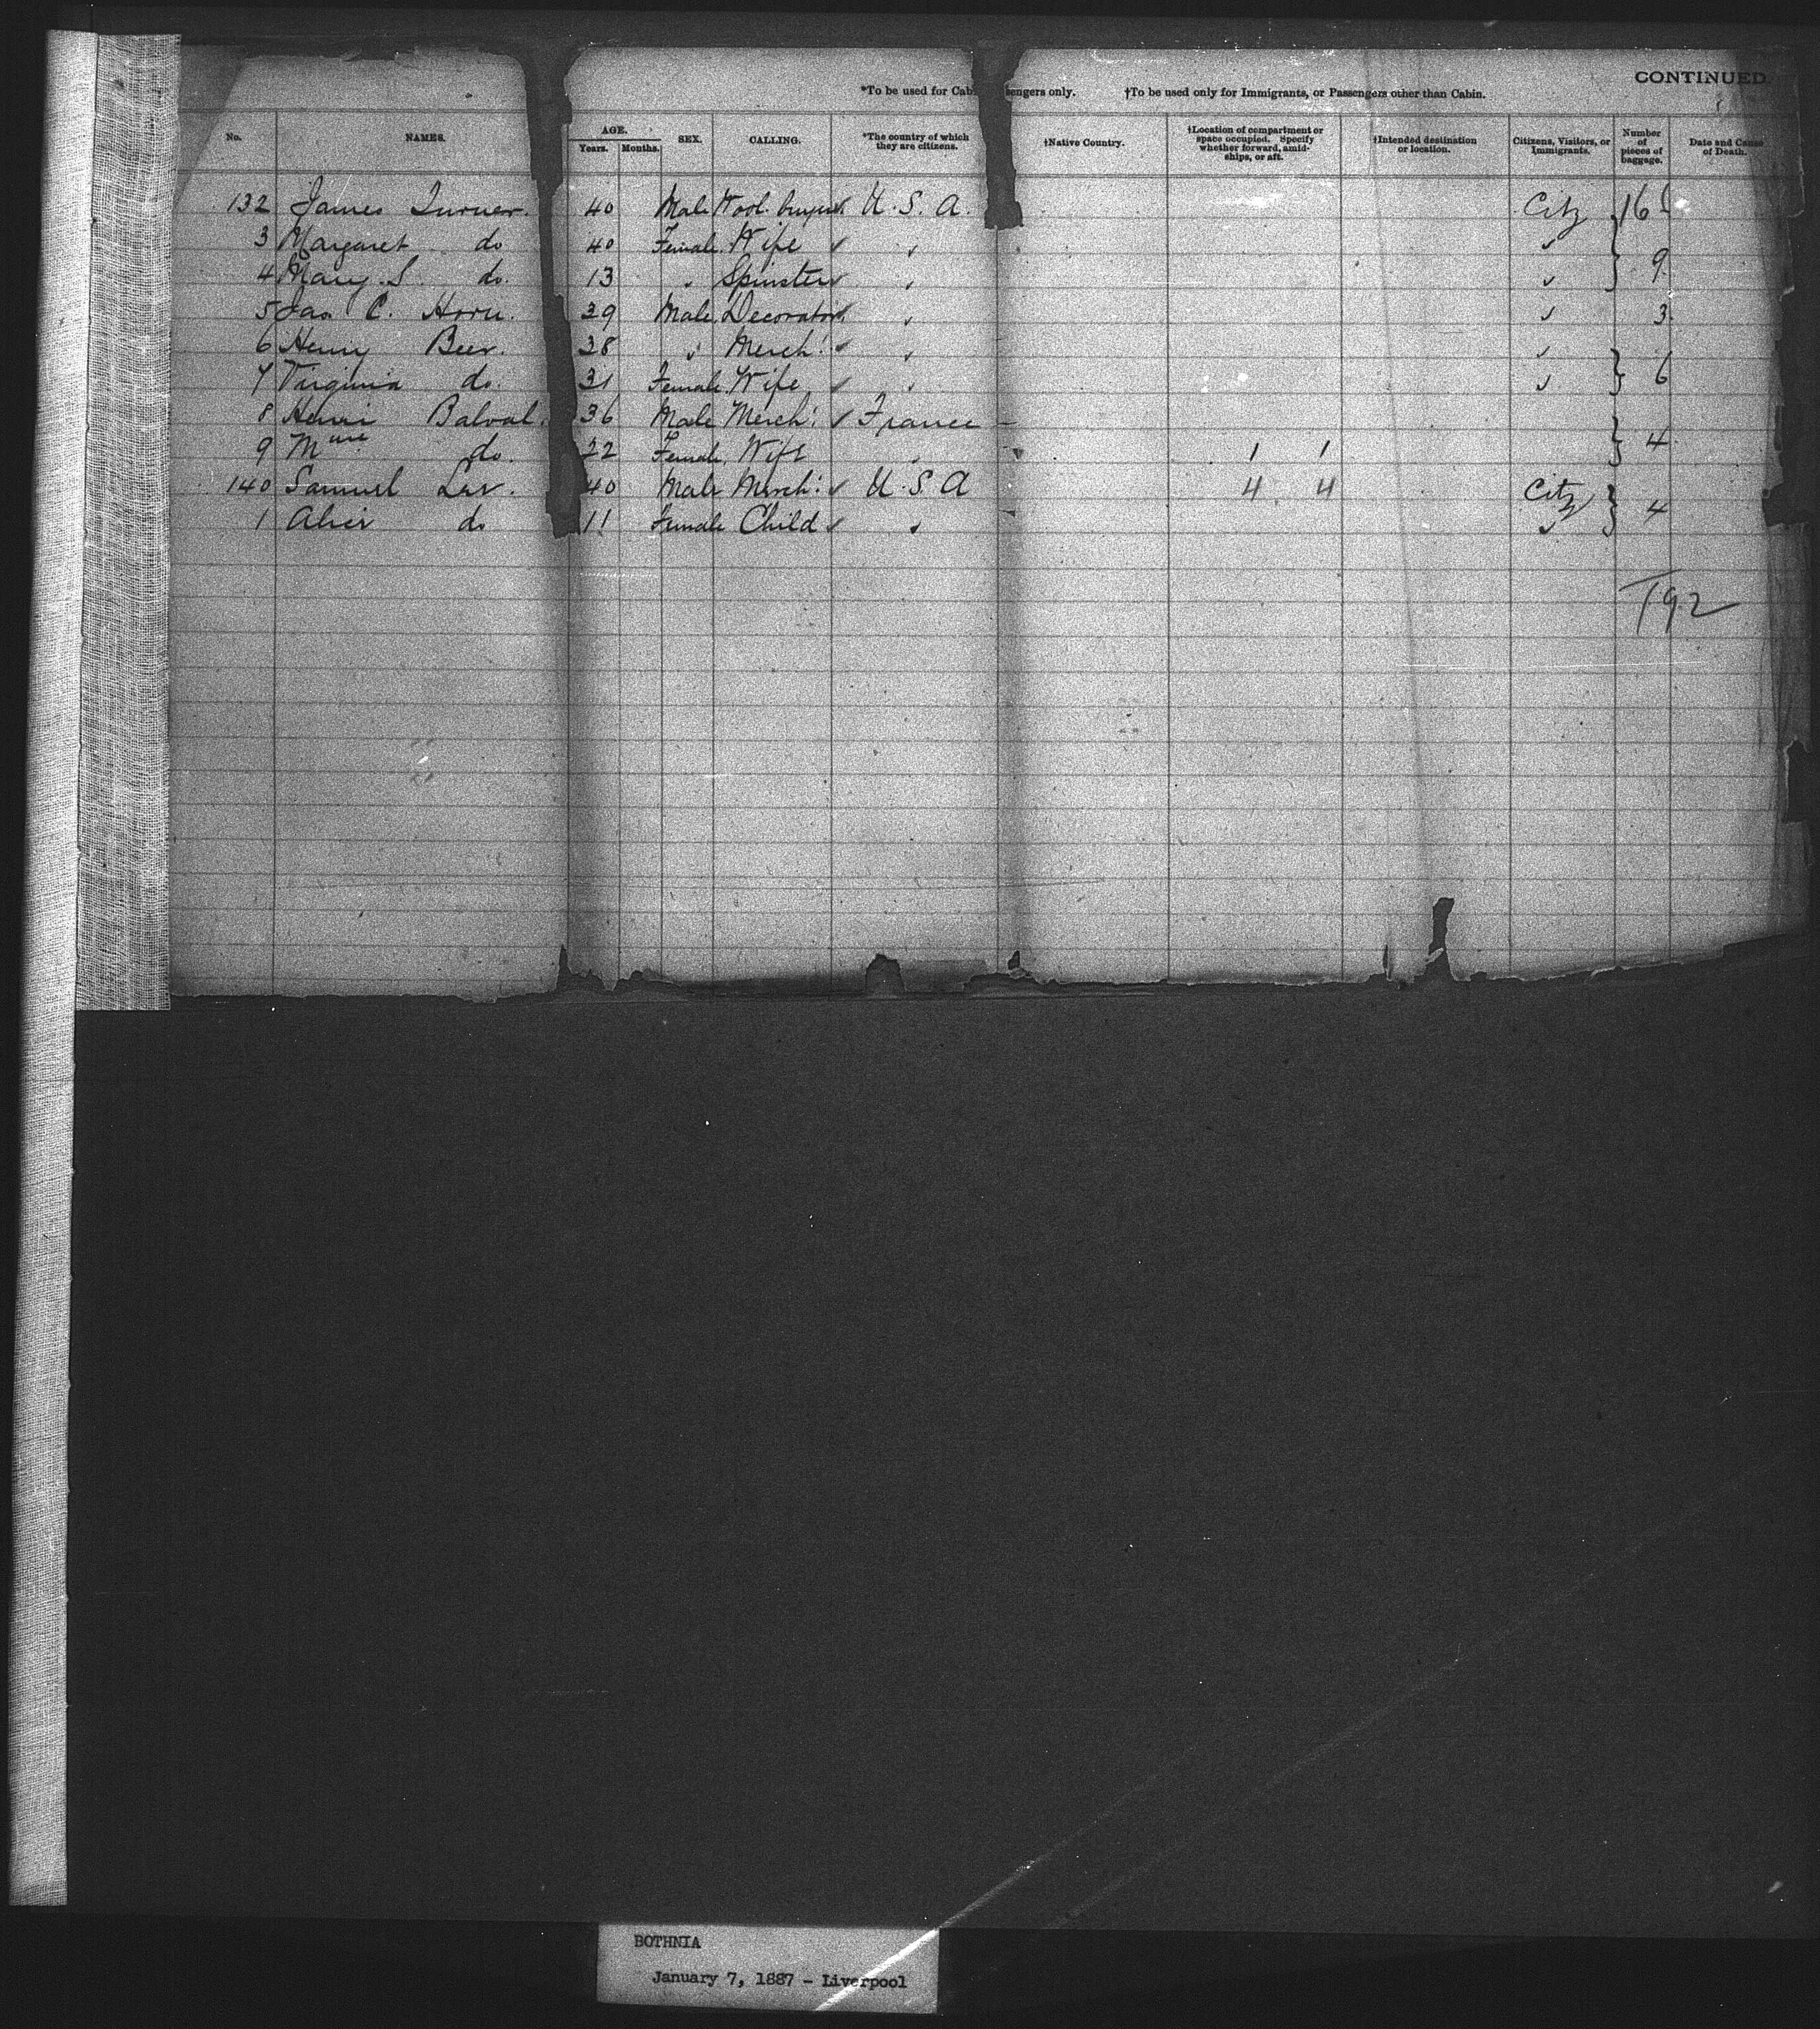 CONTINUED.
*To be used for Cab engers only. †To be used only for Immigrants, or Passengers other than Cabin.
No. NAMES. AGE. Years. Months. SEX. CALLING. *The country of which they are citizens. †Native Country. †Location of compartment or space occupied. Specify whether forward, amidships, or aft. †Intended destination or location. Citizens, Visitors, or Immigrants. Number of pieces of baggage. Date and Cause of Death.
132 James Turner. 40 Male Wool buyer U.S.A. Citz } 16
3 Margaret do 40 Female Wife "
4 Mary S do. 13 " Spinster " } 9
5 Jas C. Horn. 39 Male Decorator " 3
6 Henry Beer. 38 " Mercht "
7 Virginia do. 31 Female Wife " } 6
8 Henri Balval. 36 Male Mercht France
9 Mme do. 22 Female Wife " 1 1 } 4
140 Samuel 40 Male Mercht U.S.A 4 4 Citz
1 Alice do 11 Female Child " } 4
192
BOTHNIA
January 7, 1887 - Liverpool